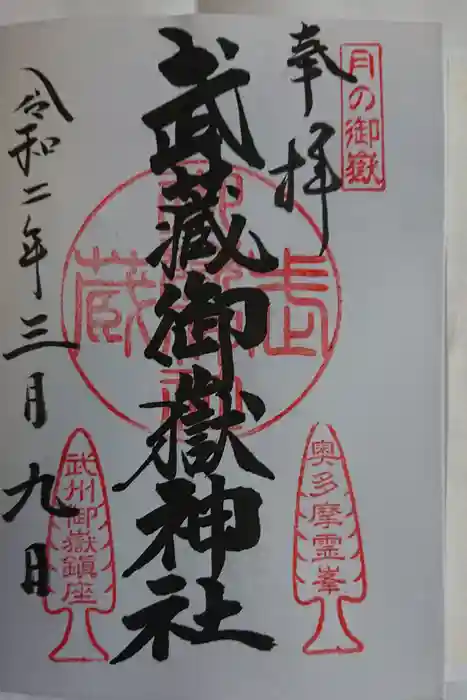 月の御嶽
奉拝
奥多摩霊峯
武蔵御嶽神社
武州御嶽鎮座
令和二年三月九日